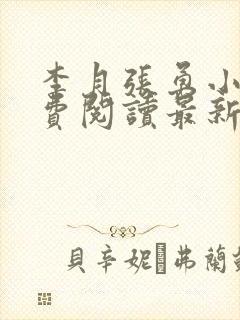 李月張勇小
費閱讀最新
貝辛妮 弗蘭